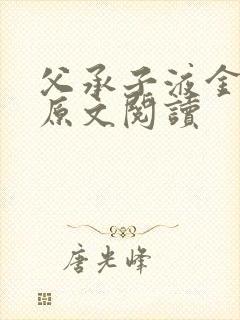 父承子液金
原文閱讀
唐光峰